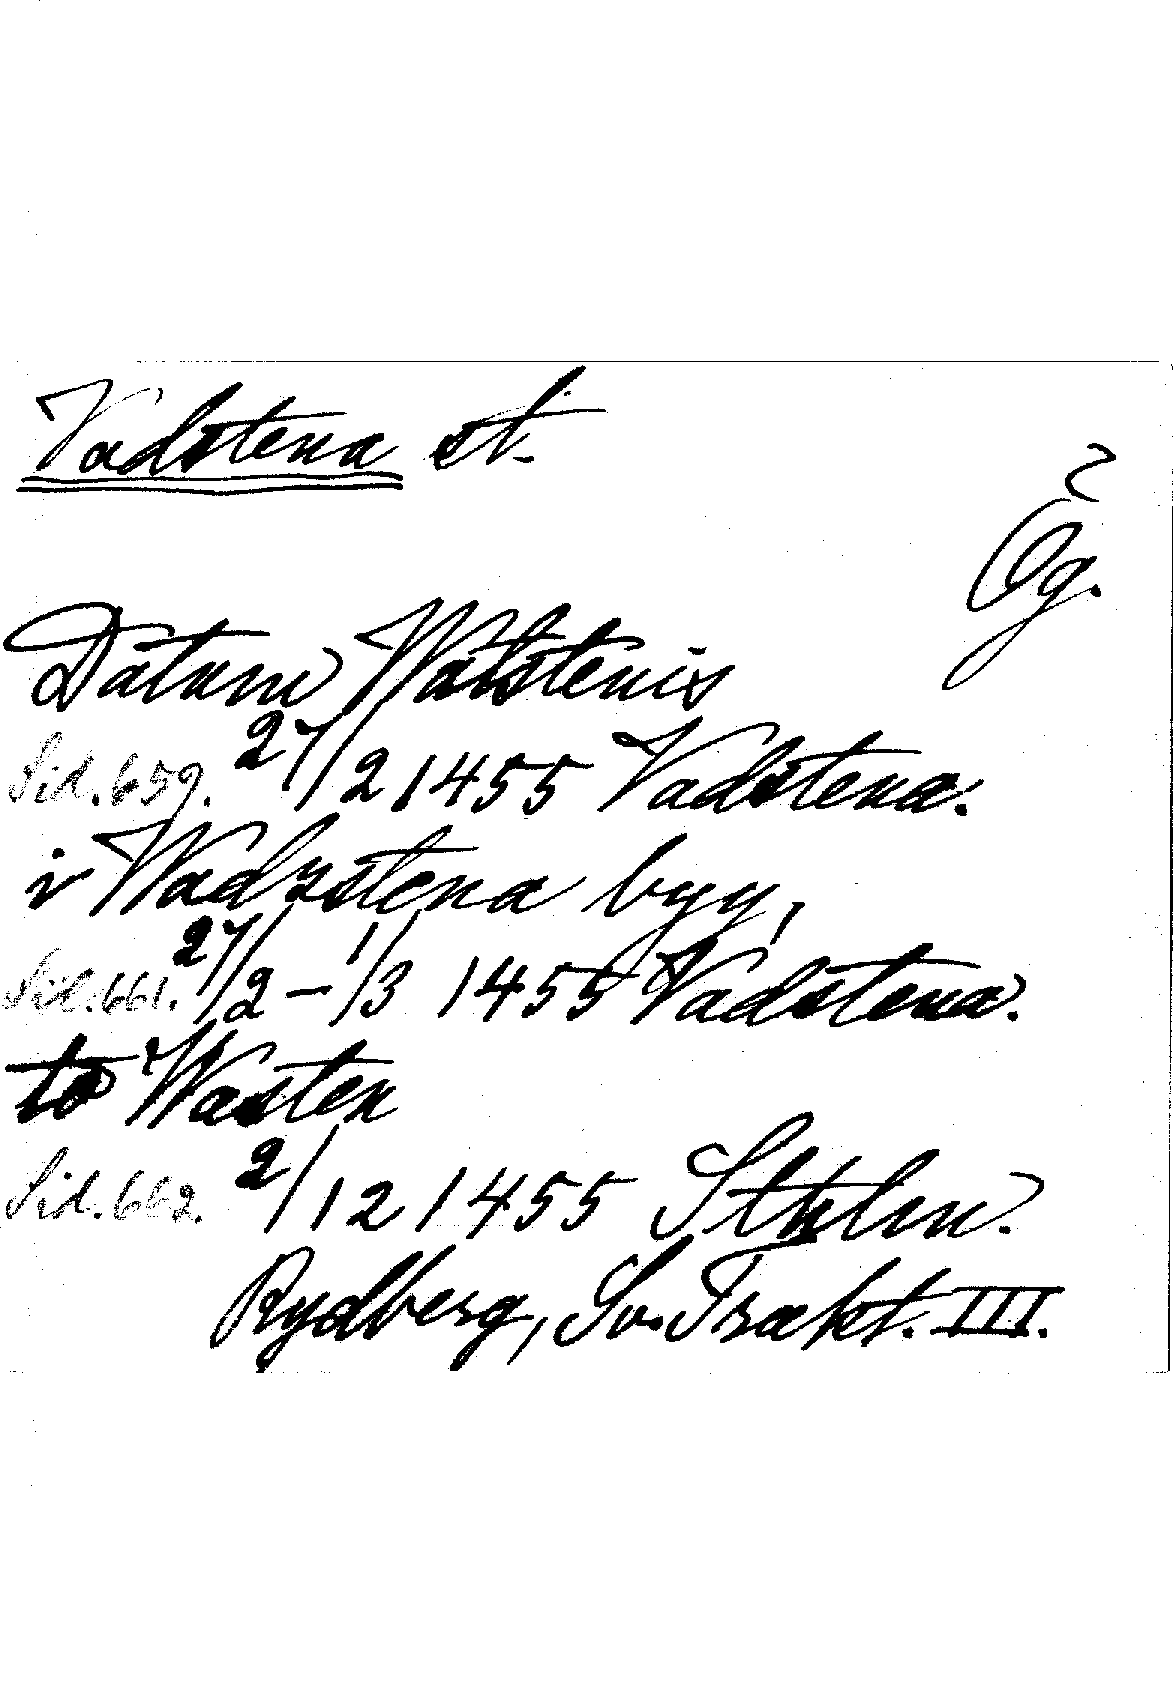 Vadstena st.
Ög.
Datum Watstenis
Sid. 659. 27/2 1455 Vadstena.
i Wadzstena byy,
Sid. 661. 27/2 - 1/3 1455 Vadstena.
to Wasten
Sid. 662. 2/12 1455 Sthlm.
Rydberg, Sv. Trakt. III.